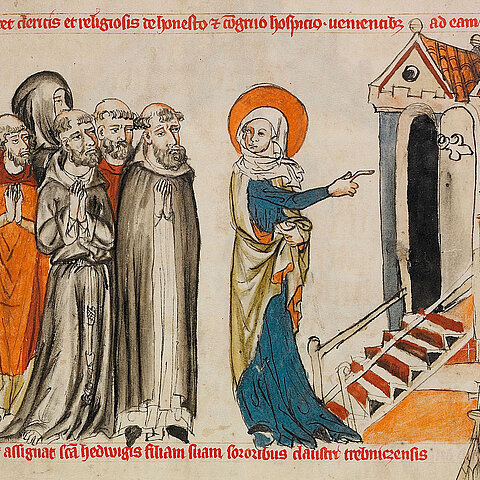 et clericis et religiosis de honesto ⁊ cōgruo hospicio · uenientibꝫ ad eam
assignat scā hedwigis filiam suam sororibus claustri trebniczensis